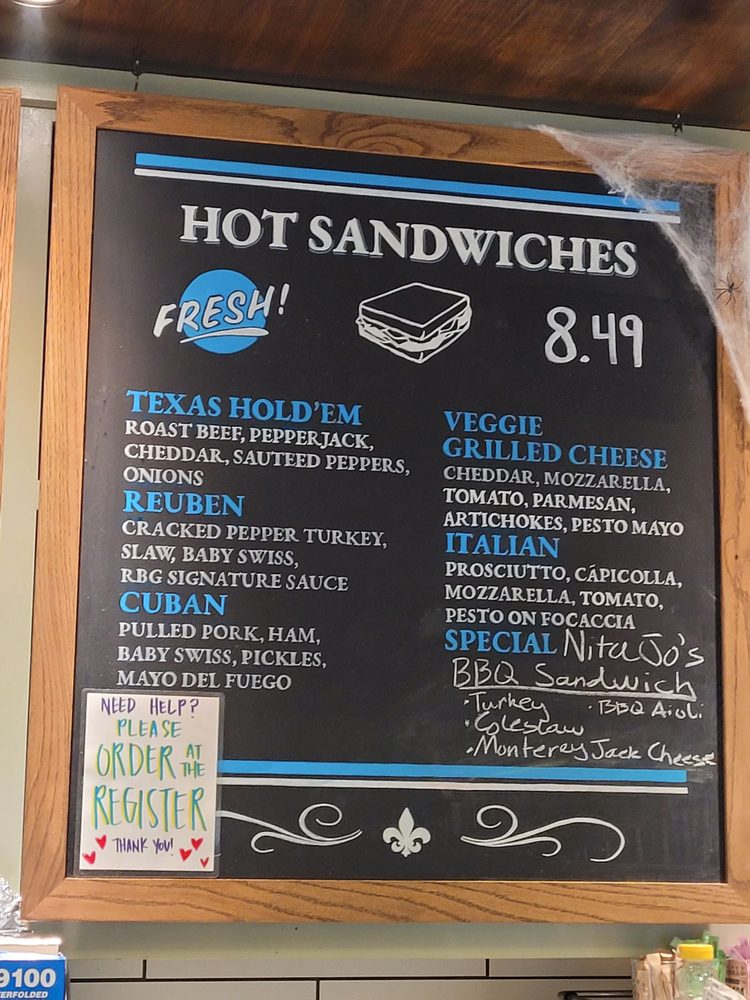 HOT SANDWICHES
FRESH!
8.49
TEXAS HOLD'EM
ROAST BEEF, PEPPERJACK,
CHEDDAR, SAUTEED PEPPERS,
ONIONS
REUBEN
CRACKED PEPPER TURKEY,
SLAW, BABY SWISS,
RBG SIGNATURE SAUCE
CUBAN
PULLED PORK, HAM,
BABY SWISS, PICKLES,
MAYO DEL FUEGO
VEGGIE
GRILLED CHEESE
CHEDDAR, MOZZARELLA,
TOMATO, PARMESAN,
ARTICHOKES, PESTO MAYO
ITALIAN
PROSCIUTTO, CÁPICOLLA,
MOZZARELLA, TOMATO,
PESTO ON FOCACCIA
SPECIAL Nita Jo's
BBQ Sandwich
· Turkey · BBQ Aioli
· Coleslaw
· Monterey Jack Cheese
NEED HELP?
PLEASE
ORDER AT THE
REGISTER
THANK YOU!
9100
TERFOLDED